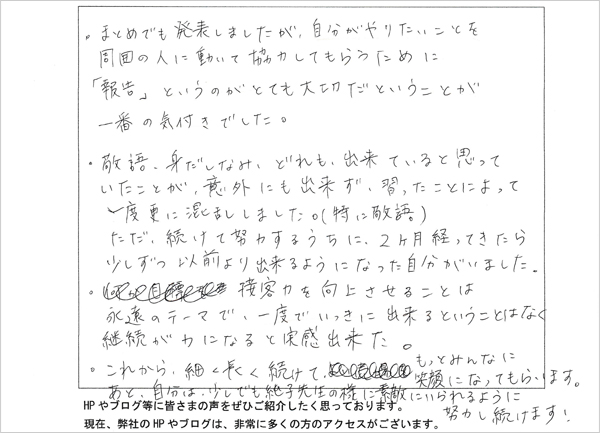 ・まとめでも発表しましたが、自分がやりたいことを
周囲の人に動いて協力してもらうために
「報告」というのがとても大切だということが
一番の気付きでした。
・敬語、身だしなみ、どれも、出来ていると思って
いたことが、意外にも出来ず、習ったことによって
一度更に混乱しました。(特に敬語)
ただ、続けて努力するうちに、2ヶ月経ってきたら
少しずつ以前より出来るようになった自分がいました。
・接客力を向上させることは
永遠のテーマで、一度でいっきに出来るということはなく
継続が力になると実感出来た。
・これから、細く長く続けて、もっとみんなに
笑顔になってもらいます。
あと、自分は、少しでも絶子先生の様に素敵にいられるように
努力し続けます!
HPやブログ等に皆さまの声をぜひご紹介したく思っております。
現在、弊社のHPやブログは、非常に多くの方のアクセスがございます。